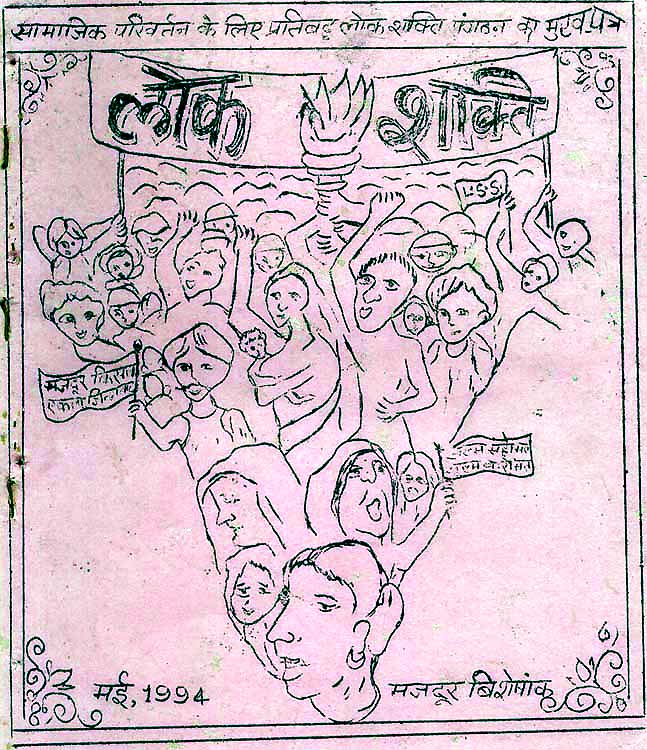 सामाजिक परिवर्तन के लिए प्रतिबद्ध लोक शक्ति संगठन का मुख पत्र
लोक शक्ति
L.S.S.
मजदूर किसान
एकता जिन्दाबाद
मई, 1994
मजदूर विशेषांक